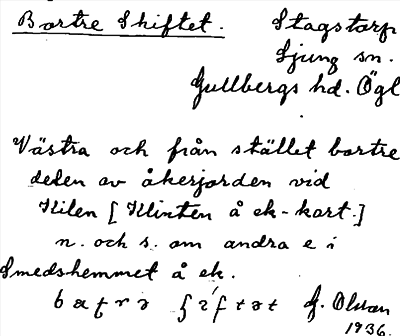 Bortre Skiftet. Stagstorp
Ljung sn.
Gullbergs hd. Ögl
Västra och från stället bortre
delen av åkerjorden vid
Kilen [Klinten å ek-kart.]
n. och s. om andra e i
Smedshemmet å ek.
Olsson
1936.